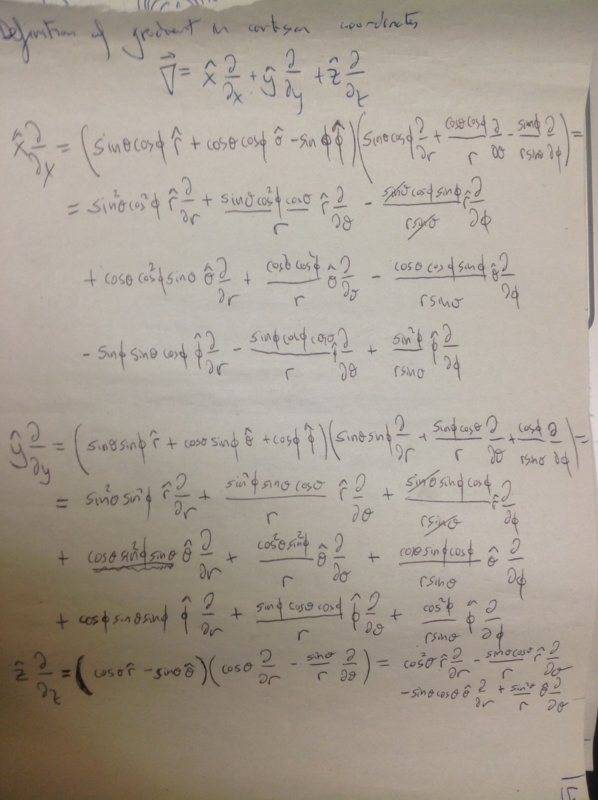 Definition of gradient in cartesian coordinates
∇⃗ = x̂ ∂/∂x + ŷ ∂/∂y + ẑ ∂/∂z
x̂ ∂/∂x = (sinθcosϕ r̂ + cosθcosϕ θ̂ - sinϕ ϕ̂)(sinθcosϕ ∂/∂r + cosθcosϕ/r ∂/∂θ - sinϕ/rsinθ ∂/∂ϕ) =
= sin²θcos²ϕ r̂ ∂/∂r + sinθcos²ϕcosθ/r r̂ ∂/∂θ - sinθcosϕsinϕ/rsinθ r̂ ∂/∂ϕ
+ cosθcos²ϕsinθ θ̂ ∂/∂r + cos²θcos²ϕ/r θ̂ ∂/∂θ - cosθcosϕsinϕ/rsinθ θ̂ ∂/∂ϕ
- sinϕsinθcosϕ ϕ̂ ∂/∂r - sinϕcosϕcosθ/r ϕ̂ ∂/∂θ + sin²ϕ/rsinθ ϕ̂ ∂/∂ϕ
ŷ ∂/∂y = (sinθsinϕ r̂ + cosθsinϕ θ̂ + cosϕ ϕ̂)(sinθsinϕ ∂/∂r + sinϕcosθ/r ∂/∂θ + cosϕ/rsinθ ∂/∂ϕ) =
= sin²θsin²ϕ r̂ ∂/∂r + sin²ϕsinθcosθ/r r̂ ∂/∂θ + sinθsinϕcosϕ/rsinθ r̂ ∂/∂ϕ
+ cosθsin²ϕsinθ θ̂ ∂/∂r + cos²θsin²ϕ/r θ̂ ∂/∂θ + cosθsinϕcosϕ/rsinθ θ̂ ∂/∂ϕ
+ cosϕsinθsinϕ ϕ̂ ∂/∂r + sinϕcosθcosϕ/r ϕ̂ ∂/∂θ + cos²ϕ/rsinθ ϕ̂ ∂/∂ϕ
ẑ ∂/∂z = (cosθ r̂ - sinθ θ̂)(cosθ ∂/∂r - sinθ/r ∂/∂θ) = cos²θ r̂ ∂/∂r - sinθcosθ/r r̂ ∂/∂θ
- sinθcosθ θ̂ ∂/∂r + sin²θ/r θ̂ ∂/∂θ